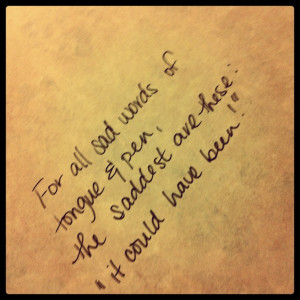 For all sad words of
tongue & pen,
the saddest are these:
"it could have been!"